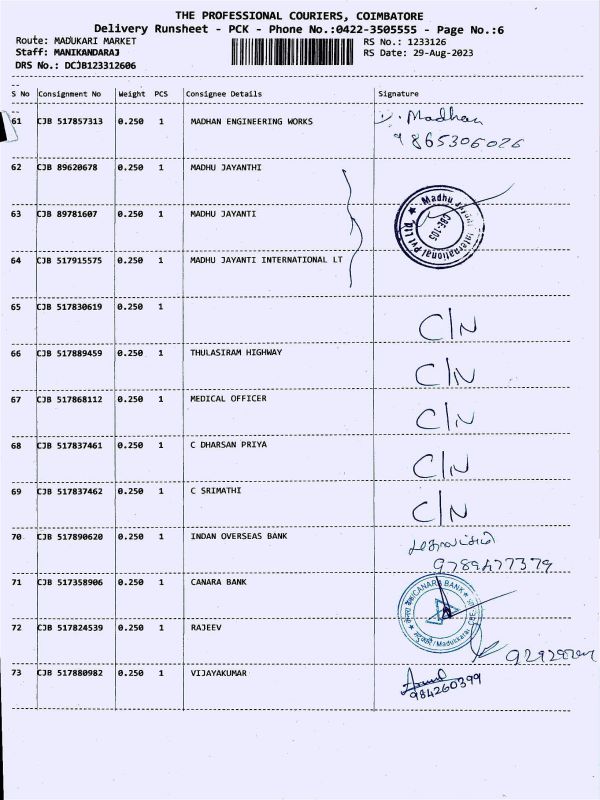 THE PROFESSIONAL COURIERS, COIMBATORE
Delivery Runsheet - PCK - Phone No.:0422-3505555 - Page No.:6
Route: MADUKARI MARKET RS No.: 1233126
Staff: MANIKANDARAJ RS Date: 29-Aug-2023
DRS No.: DCJB123312606
S No Consignment No Weight PCS Consignee Details Signature
61 CJB 517857313 0.250 1 MADHAN ENGINEERING WORKS Madhan
9865306026
62 CJB 89620678 0.250 1 MADHU JAYANTHI
63 CJB 89781607 0.250 1 MADHU JAYANTI
Madhu Jayanti International Pvt Ltd
CBE-105
64 CJB 517915575 0.250 1 MADHU JAYANTI INTERNATIONAL LT
65 CJB 517830619 0.250 1 C/N
66 CJB 517889459 0.250 1 THULASIRAM HIGHWAY C/N
67 CJB 517868112 0.250 1 MEDICAL OFFICER C/N
68 CJB 517837461 0.250 1 C DHARSAN PRIYA C/N
69 CJB 517837462 0.250 1 C SRIMATHI C/N
70 CJB 517890620 0.250 1 INDAN OVERSEAS BANK
9789477379
71 CJB 517358906 0.250 1 CANARA BANK
CANARA BANK
72 CJB 517824539 0.250 1 RAJEEV
73 CJB 517880982 0.250 1 VIJAYAKUMAR
984260399